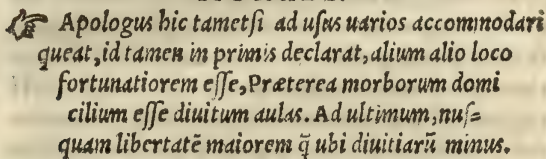 ☞ Apologus hic tametſi ad uſus uarios accommodari
queat, id tamen in primis declarat, alium alio loco
fortunatiorem eſſe, Præterea morborum domi
cilium eſſe diuitum aulas. Ad ultimum, nuſ=
quam libertatē maiorem q̃ ubi diuitiarũ minus.